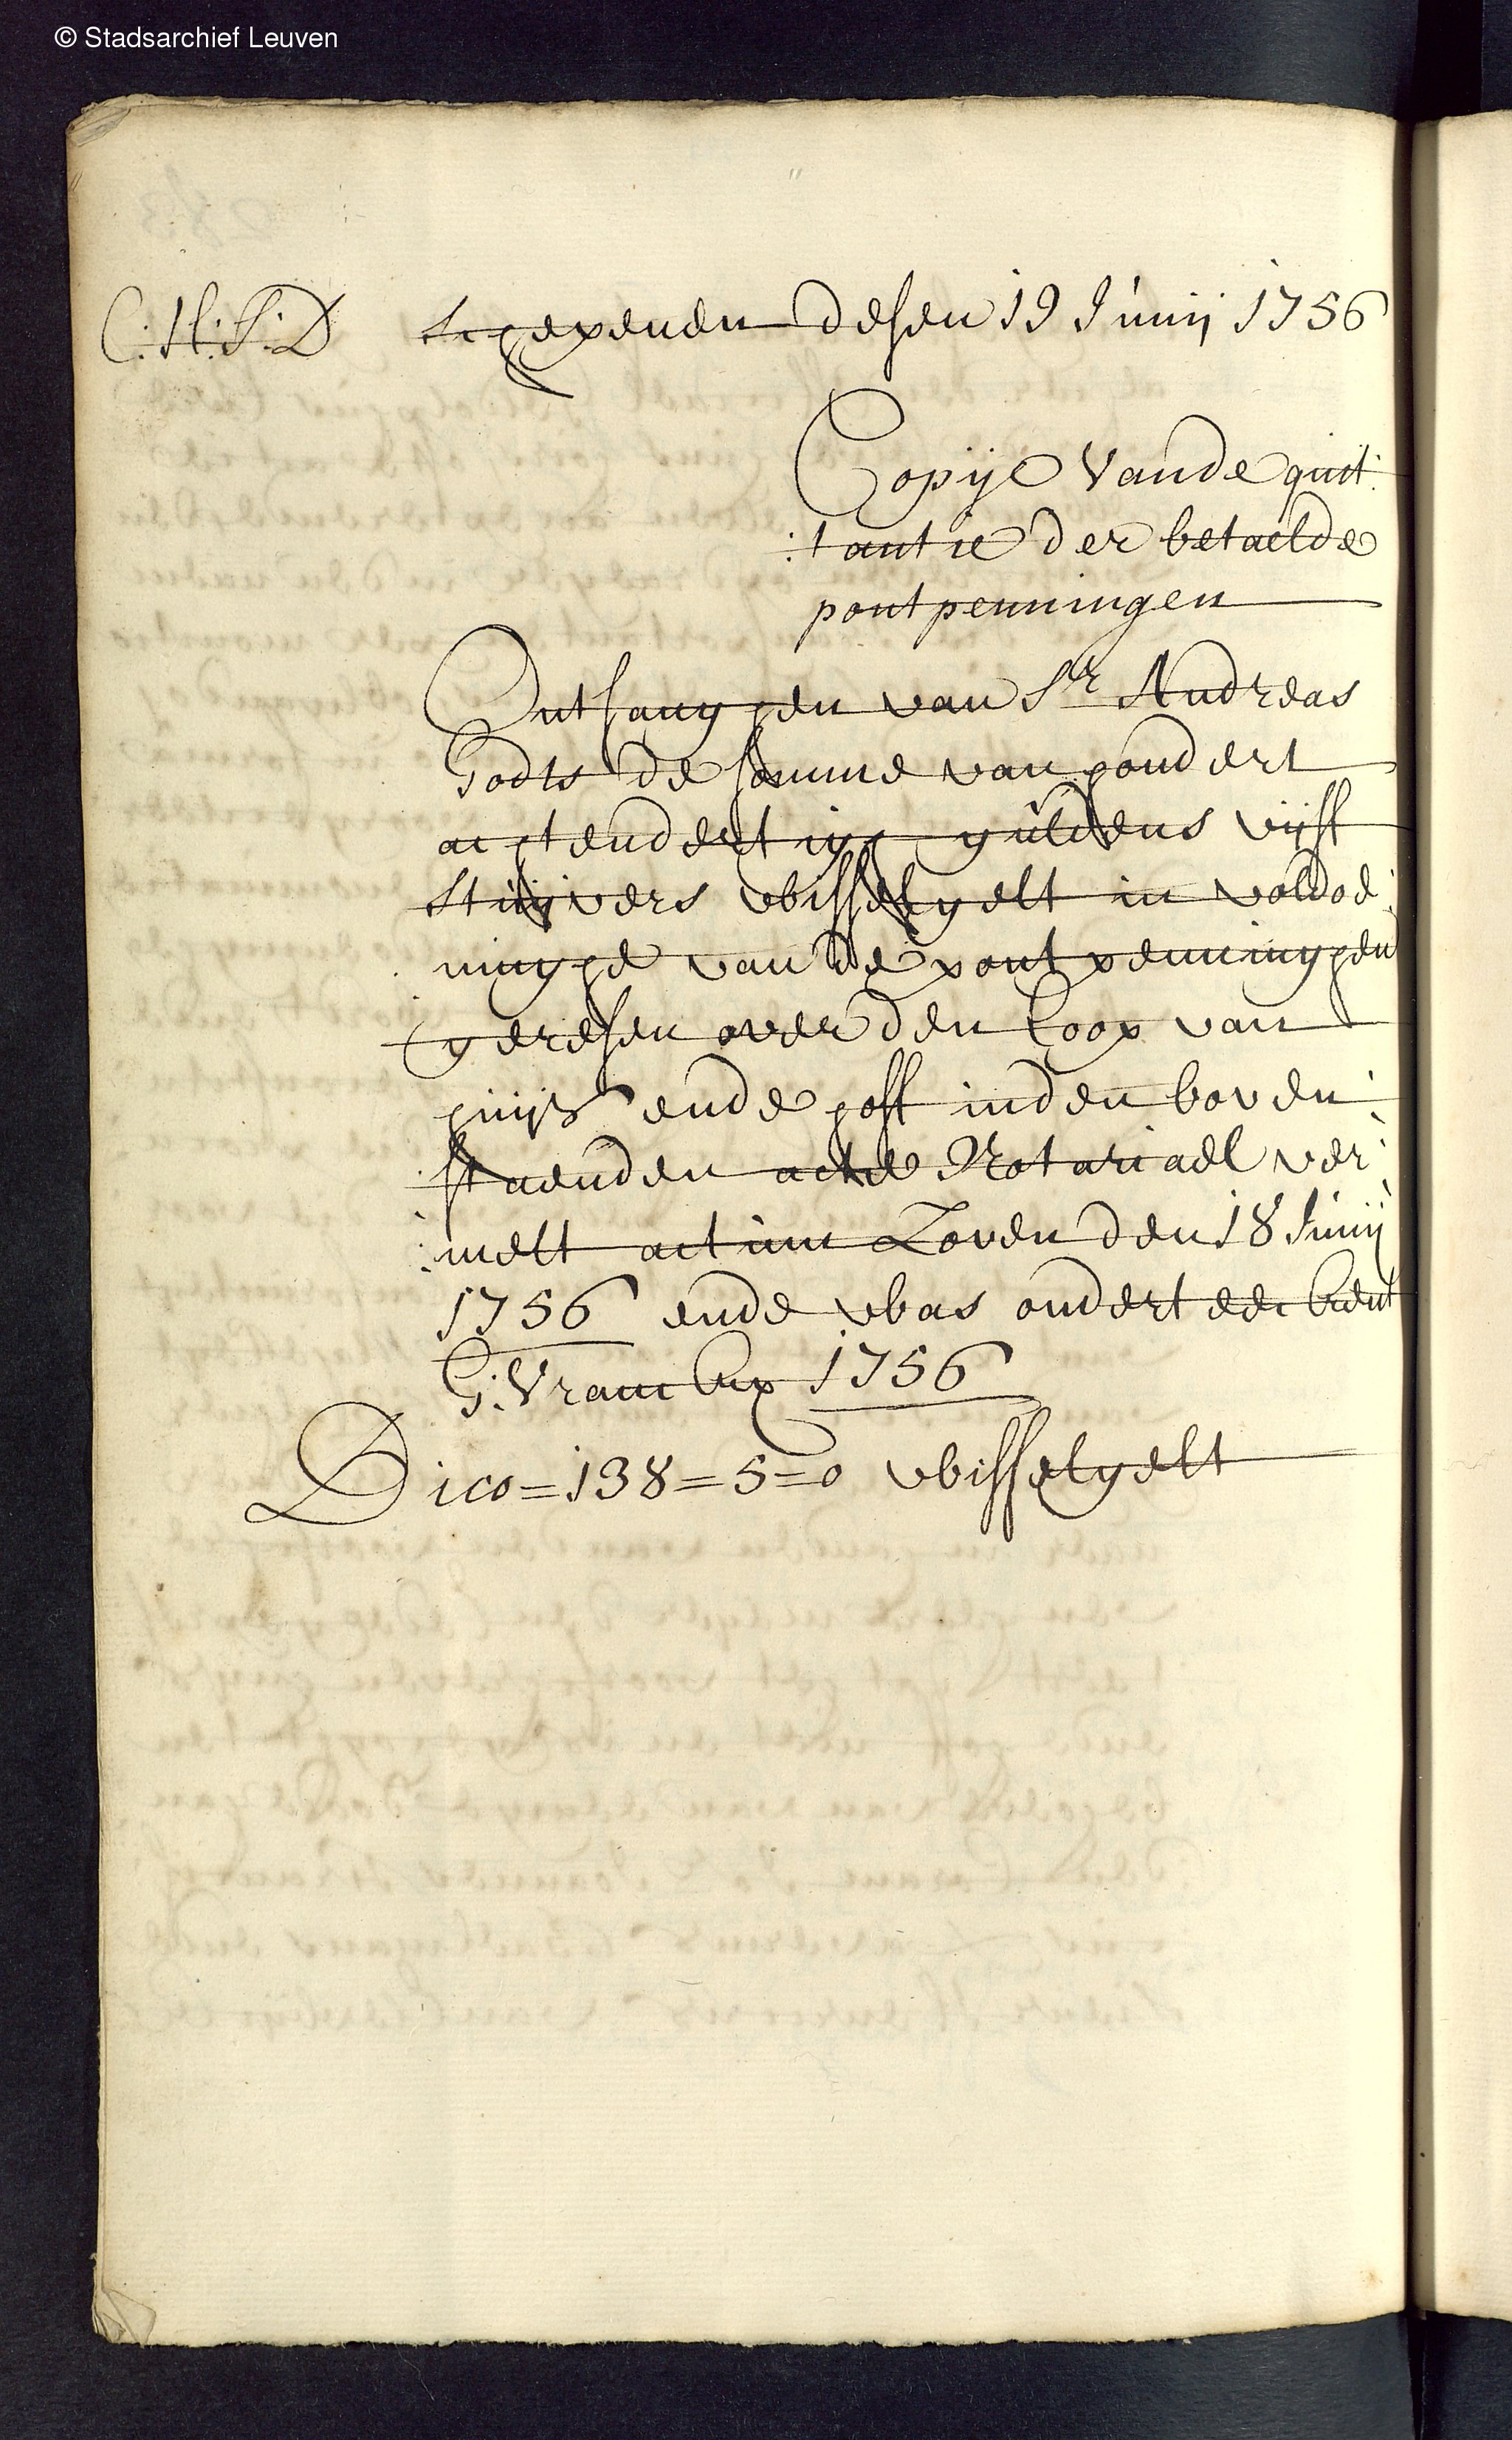 © Stadsarchief Leuven
C: H: S: D schepenen desen 19 Junij 1756
Copije vande quit:
:tantie der betaelde
pontpenningen
Ontfanghen van Sr Andreas
Godts de somme van hondert
achtendertigh guldens vijff
stuijvers wisselgelt in voldoe:
ninghe van de pontpenninghen
geresen over den coop van
huijs ende hoff inden boven:
:staenden acte Notariael ver:
:melt actum Loven den 18 Junij
1756 ende was onderteeckent
G: Vranckx 1756
Dico = 138 = 5 = 0 wisselgelt